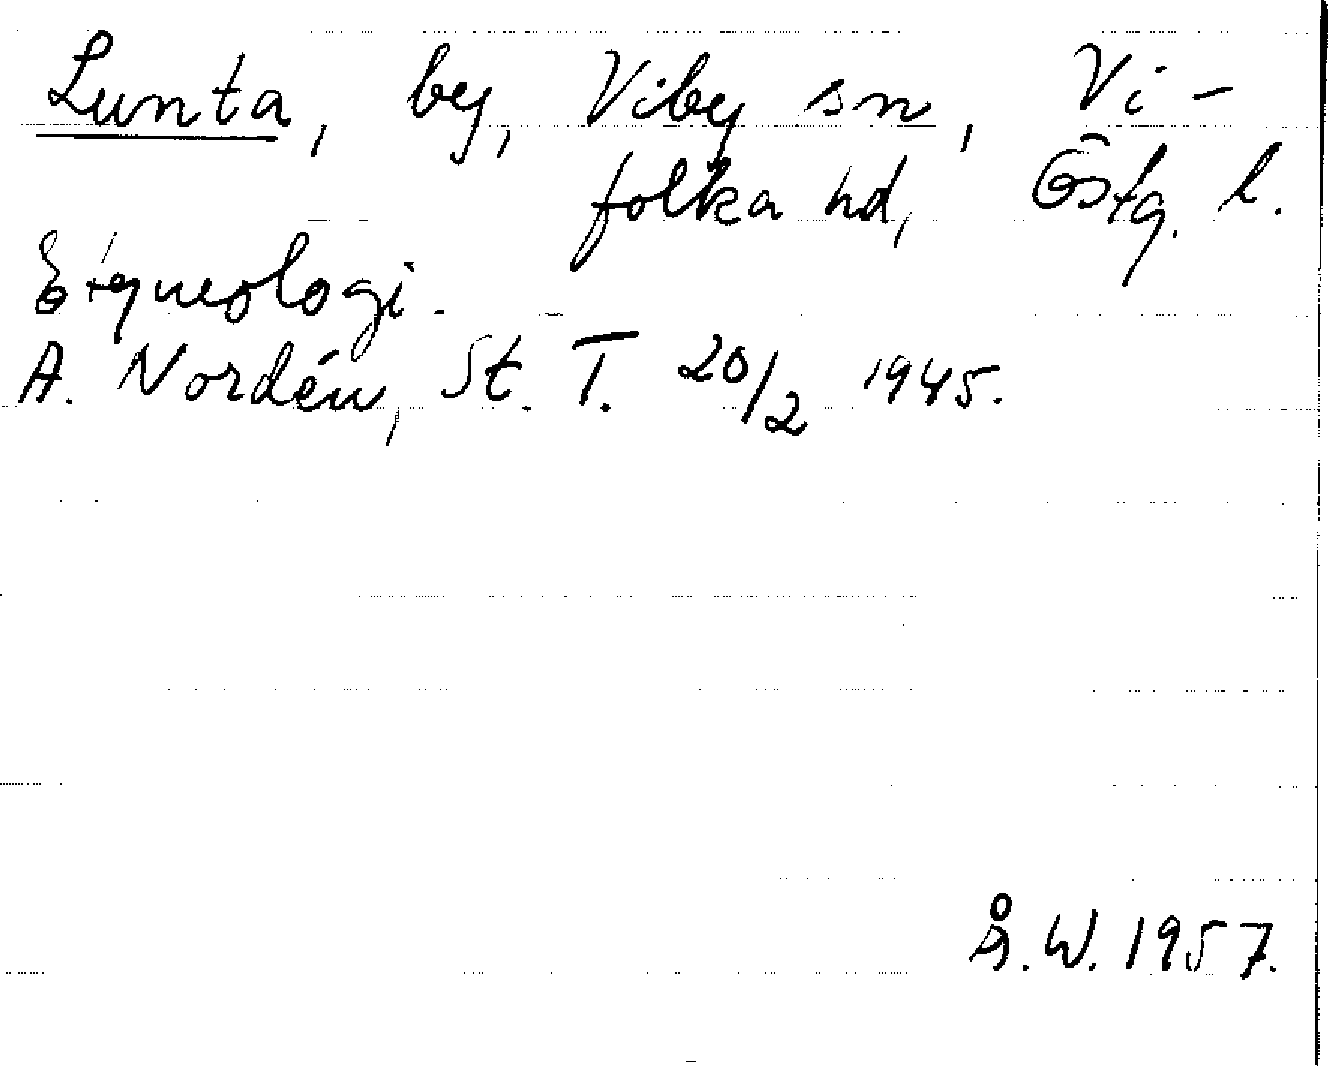 Lunta, by, Viby sn, Vi-
folka hd, Östg. l.
Etymologi.
A. Nordén, St. T. 20/2 1945.
Å. W. 1957.